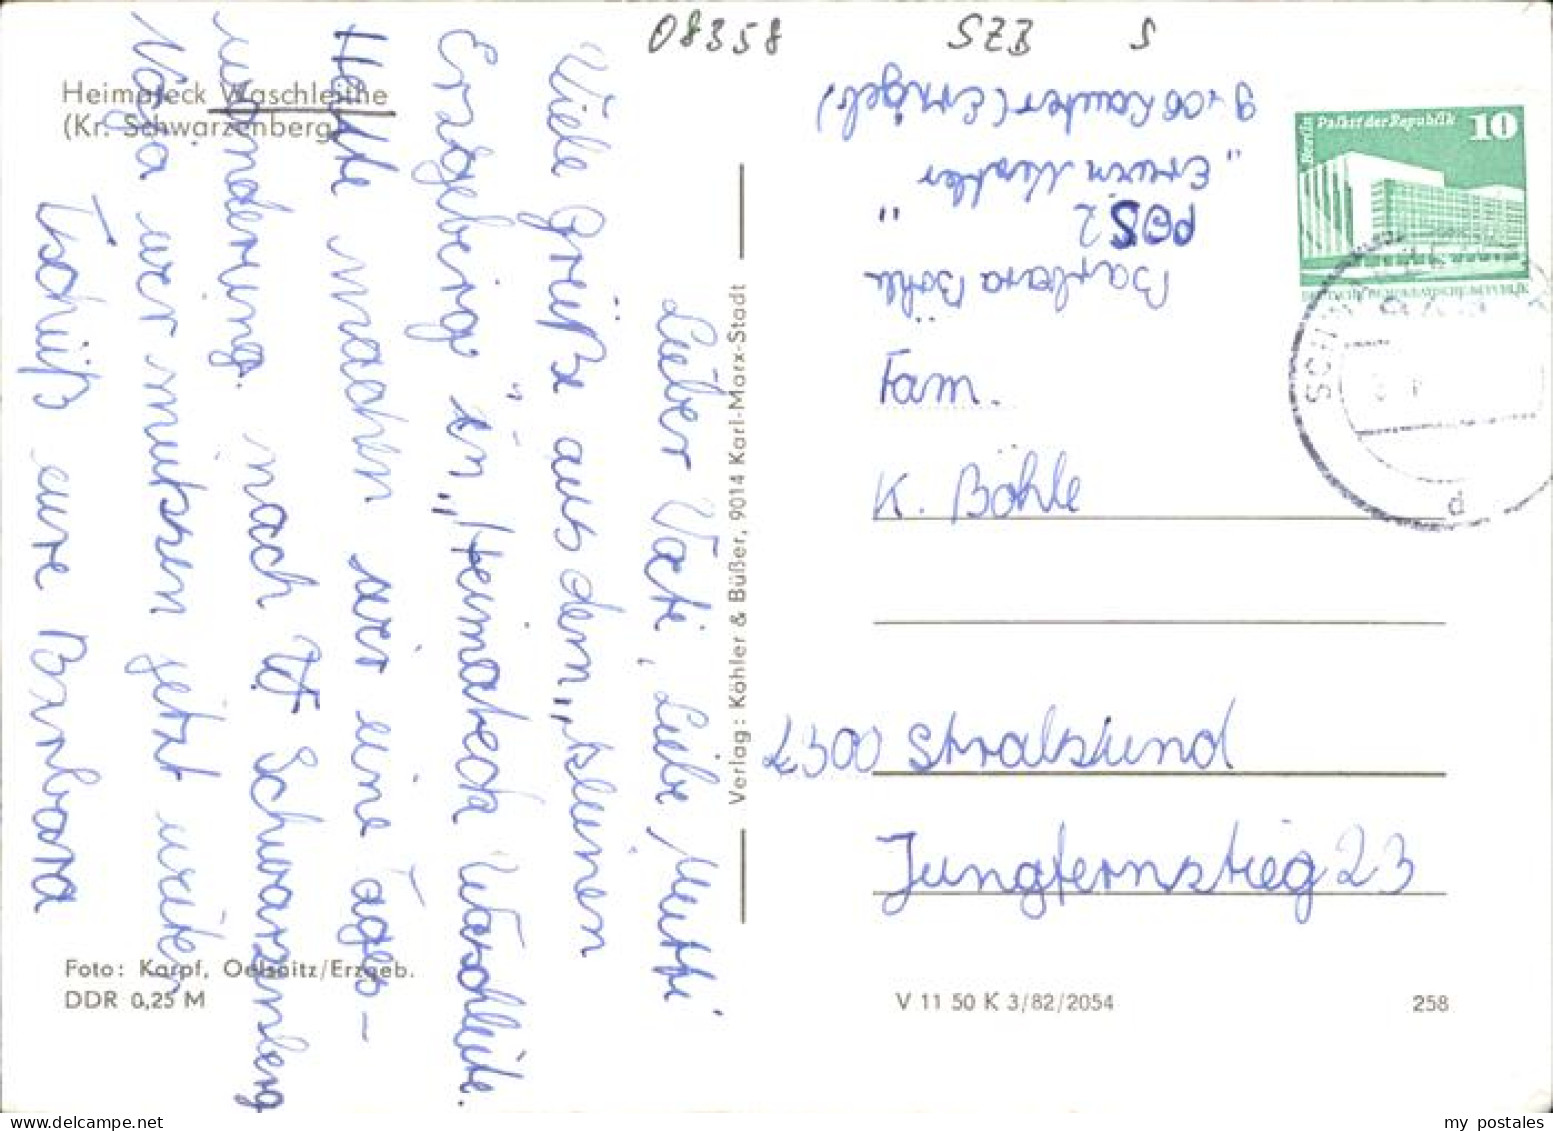 08358 SZB S
Heimateck Waschleithe
(Kr. Schwarzenberg)
Lieber Vati, Liebe Mutti
Viele Grüße aus dem „kleinen
Erzgebirg" in „Heimateck Waschleite.
Heute machen wir eine Tages-
wanderung. nach Schwarzenberg
Naja wir mussen jetzt weiter
Tschüß eure Barbara
Foto: Karpf, Oelsnitz/Erzgeb.
DDR 0,25 M
Verlag: Köhler & Büßer, 9014 Karl-Marx-Stadt
Barbara Böhle
POS 2
"Erwin "
Lauter (Erzgeb)
Berlin Palast der Republik 10
DEUTSCHE DEMOKRATISCHE REPUBLIK
SCH
d
Fam.
K. Böhle
2300 Stralsund
Jungfernstieg 23
V 11 50 K 3/82/2054
258
my postales